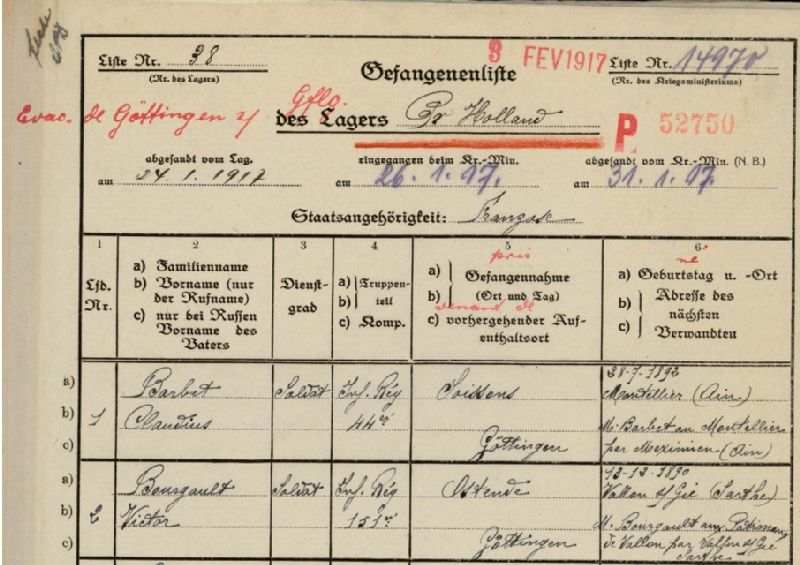 Liste
Liste Nr. 38
(Nr. des Lagers)
3 FEV 1917
Liste Nr. 14970
(Nr. des Kriegsministeriums)
Gefangenenliste
Evac. de Göttingen s/
Gflg.
des Lagers Pr Holland
P 52750
abgesandt vom Lag.
am 24.1.1917
eingegangen beim Kr.-Min.
am 26.1.17.
abgesandt vom Kr.-Min. (N. B.)
am 31.1.17.
Staatsangehörigkeit: Franzose
1
Lfd.
Nr.
2
a) Familienname
b) Vorname (nur
der Rufname)
c) nur bei Russen
Vorname des
Vaters
3
Dienst-
grad
4
a) Truppen-
b) teil
c) Komp.
5
pris
a) Gefangennahme
b) (Ort und Tag)
venant de
c) vorhergehender Auf-
enthaltsort
6
né
a) Geburtstag u. -Ort
b) Adresse des
c) nächsten
Verwandten
a)
b) 1
c)
Barbet
Claudius
Soldat
Inf. Rég
44er
Soissons
Göttingen
28.7.1892
Montellier (Ain)
M. Barbet au Montellier
par Meximieu (Ain)
a)
b) 2
c)
Bourgault
Victor
Soldat
Inf. Rég
151er
Ostende
Göttingen
13-12-1890
Vallon s/Gée (Sarthe)
M. Bourgault
de Vallon par Vallon s/Gée
Sarthe